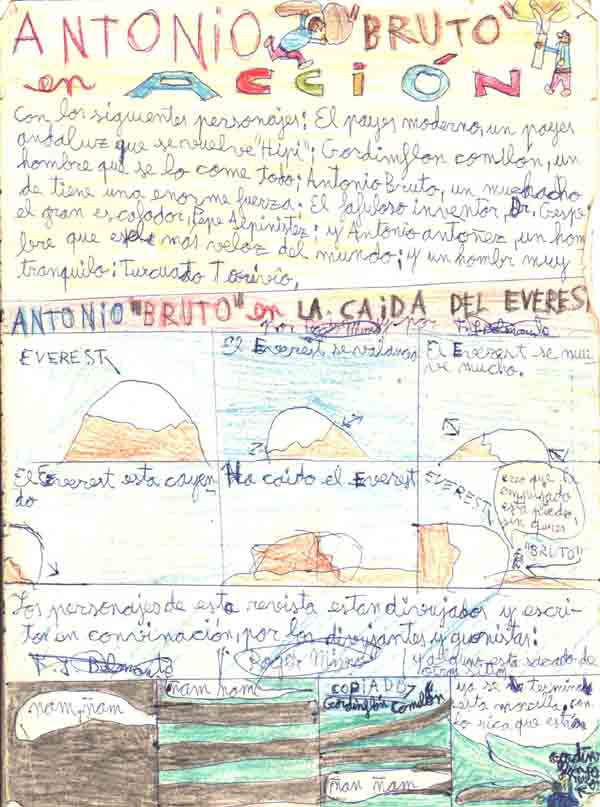 ANTONIO "BRUTO"
en ACCIÓN
con los siguientes personajes: El payes moderno, un payes
andaluz que se vuelve "Hipi"; Gordinflon comilon, un
hombre que se lo come todo; Antonio Bruto, un muchacho
de tiene una enorme fuerza. El fabuloso inventor, Dr. Crespo
el gran escalador, Pepe Alpinistez; y Antonio antoñez, un hom
bre que es el mas veloz del mundo; y un hombr muy
tranquilo; Turcuado Torivio,
ANTONIO "BRUTO" en LA CAIDA DEL EVEREST
Por
EVEREST
El Everest se valancea
El Everest se mue
ve mucho.
El Everest esta cayen
do
Ha caido el Everest
EVEREST
creo que he
empujado
esta piedra
sin querer
"BRUTO"
Los personajes de esta revista estan divujados y escri-
tos en convinación, por los divujantes y guionistas:
F. J. Belmonte y Roger Mimó y alguno esta sacado de
otro sitio
ñam, ñam
ñam ñam
COPIADO
Gordinflon Comilon
ñan ñam
ya se termina
esta morcilla, con
lo rica que está